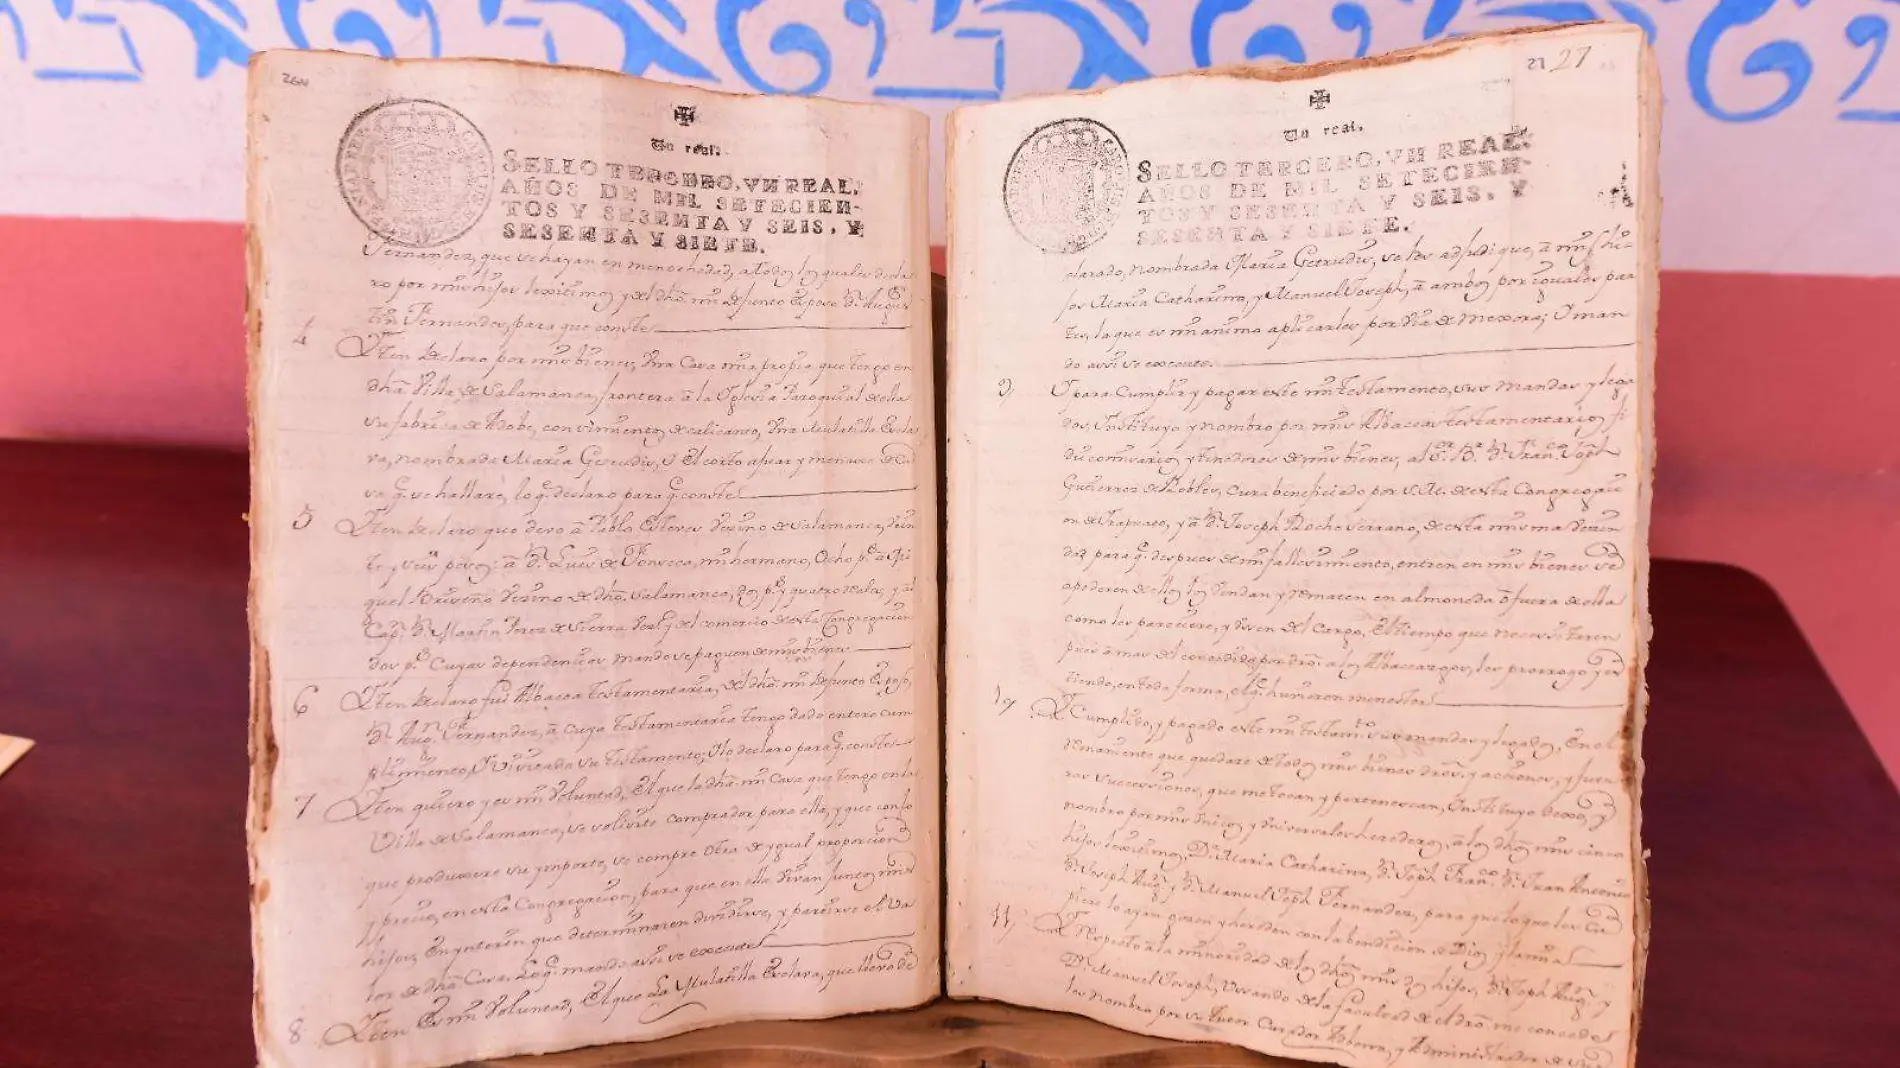 26v
Un real.
SELLO TERCERO, VN REAL,
AÑOS DE MIL SETECIEN-
TOS Y SESENTA Y SEIS, Y
SESENTA Y SIETE.
Fernandez, que se hayan en menor hedad, a todos los quales decla
ro por mis hijos lexitimos y del dho. mi difunto Esposo Dn. Augus
tin Fernandez, para que conste
4 Iten declaro por mis bienes, Una Casa mia propia que tengo en
dha Villa de Salamanca, frontera â la Iglesia Parroquial de ella
su fabrica de Adobe, con simientos de calicanto, Una Mulatilla Escla
va, nombrada Maria Getrudis, y El corto ajuar y menaje de Ca
sa q. se hallare, lo q. declaro para q. conste
5 Iten declaro que devo â Pablo Esteves Vezino de Salamanca, Vein
te y seis pesos: â Dn. Luis de Fonseca, mi hermano, Ocho ps. a Mi
guel Briseño Vezino de dha. Salamanca, dos ps. y quatro reales, y al
Capn. Dn. Martin Perez de Sierra Vezo. y del comercio de esta Congregacion
dos ps. Cuyas dependencias mando se paguen de mis bienes
6 Iten declaro fui Albacea testamentaria, del dho. mi difunto Esposo,
Dn. Augn. Fernandez, â cuya testamentaria tengo dado entero cum
plimiento, y evacuada su testamento; lo declaro para q. conste
7 Iten quiero y es mi Voluntad, El que la dha. mi Casa que tengo en la
Villa de Salamanca, se solisite comprador para ella, y que con lo
que produxere su ymporte, se compre Otra de ygual proporcion
y precio, en esta Congregacion, para que en ella Vivan juntos mis
hijos, En ynterin que determinaren dividirse, y partirse el Va
lor de dha. Casa. Lo q. mando assi se execute
8 Iten Es mi Voluntad, El que La Mulatilla Esclava, que llevo de
27 27
Un real.
SELLO TERCERO, VN REAL,
AÑOS DE MIL SETECIEN-
TOS Y SESENTA Y SEIS, Y
SESENTA Y SIETE.
clarado, nombrada Maria Getrudis, se les adjudique, â mis hi
jos Maria Catharina, y Manuel Joseph, â ambos por iguales par
tes, la que es mi animo aplicarles por Via de Mexora; y man
do assi se execute.
9 Y para Cumplir y pagar este mi testamento, sus mandas y lega
dos, Instituyo y nombro por mis Albaceas testamentarios, fi
dei comisarios y tenedores de mis bienes, al Sr. Br. Dn. Franco. Joph.
Gutierres de Robles, Cura beneficiado por S. M. de esta Congregaci
on de Irapuato, y â Dn. Joseph Rocho Serrano, de esta misma Vezin
dad para q. despues de mi fallesimiento, entren en mis bienes se
apoderen de ellos los Vendan y Rematen en almoneda ô fuera de ella
como les pareciere, y Usen de el Cargo, El tiempo que necessitaren
pues â mas de el consedido por dro. a los Albaceazgos, les prorrogo y es
tiendo, en toda forma, el q. huvieren menester
10 Y Cumplido, y pagado este mi testamto. sus mandas y legados, En el
Remaniente que quedare de todos mis bienes dros. y acciones, y futu
ras successiones, que me tocan y pertenescan, Instituyo dexo, y
nombro por mis Unicos y Universales herederos, â los dhos mis cinco
hijos lexitimos, Da. Maria Catharina, Dn. Joph. Franco. Dn. Juan Antonio
Dn. Joseph Augn. y Dn. Manuel Joph. Fernandez, para que lo que les Cu
piere lo ayan gosen y hereden con la bendicion de Dios y la mia
11 Y Respecto â la minoridad de los dhos. mis dos hijos, Dn. Joph Augn. y
Dn. Manuel Joseph, Usando de la facultad de el dro. me consede
les nombro por su tutor Curador Adbona, y Administrador de sus